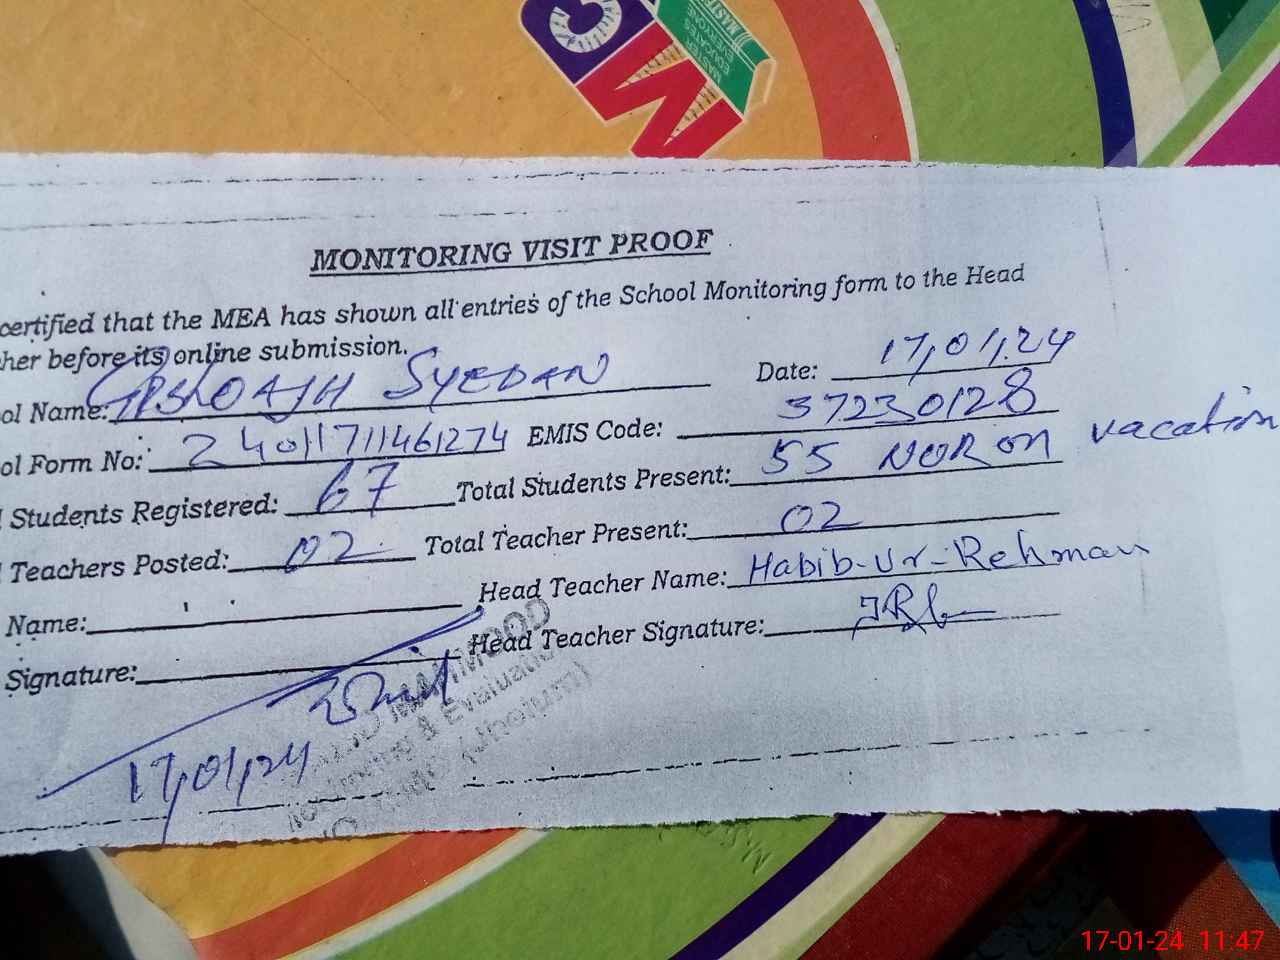 MASTER
EDUCATES
EVERYONE
MASTER
MONITORING VISIT PROOF
certified that the MEA has shown all entries of the School Monitoring form to the Head
her before its online submission.
ol Name: SYEDAN Date: 17,01,24
ol Form No: 24011711461274 EMIS Code: 37230128
Students Registered: 67 Total Students Present: 55 NUR on vacation
Teachers Posted: 02 Total Teacher Present: 02
Name: Head Teacher Name: Habib-Ur-Rehman
Signature: Head Teacher Signature:
MAHMOOD
& Evaluation
(Jhelum)
17,01,24
17-01-24 11:47